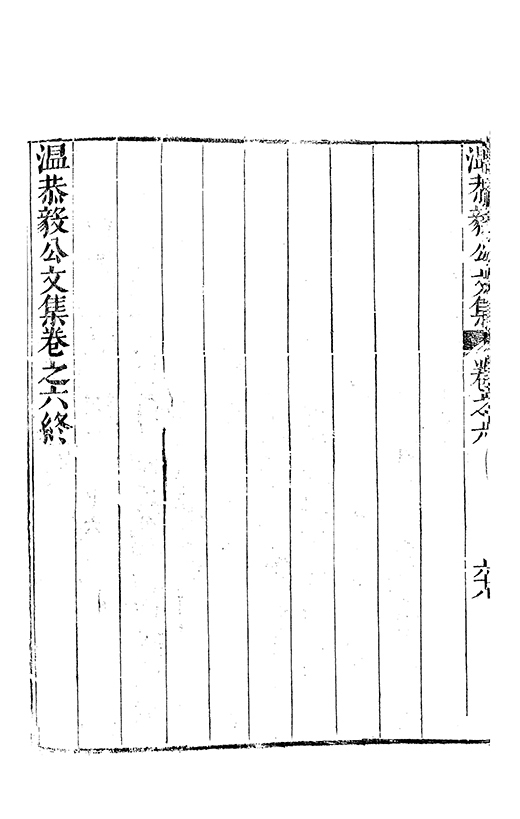 溫恭毅公文集 卷之六 六十八
溫恭毅公文集卷之六終